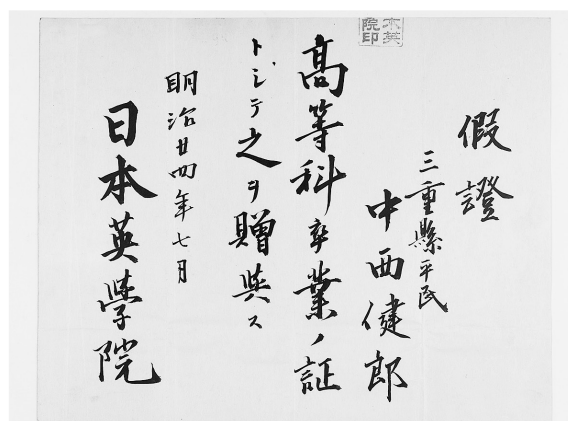 假證
三重縣平民
中西健郎
高等科卒業ノ証
トシテ之ヲ贈與ス
明治廿四年七月
日本英學院